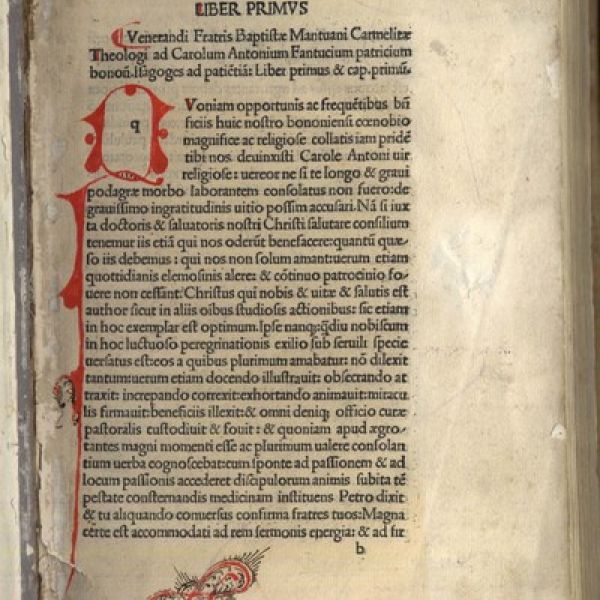 LIBER PRIMVS
Venerandi Fratris Baptistæ Mantuani Carmelitæ
Theologi ad Carolum Antonium Fantucium patricium
bonoñ. Isagoges ad patiẽtiã: Liber primus & cap. primũ.
q
Voniam opportunis ac frequẽtibus bñ
ficiis huic nostro bononiensi cœnobio
magnifice ac religiose collatis iam pridẽ
tibi nos deuinxisti Carole Antoni uir
religiose: uereor ne si te longo & graui
podagræ morbo laborantem consolatus non fuero: de
grauissimo ingratitudinis uitio possim accusari. Nã si iux
ta doctoris & saluatoris nostri Christi salutare consilium
tenemur iis etiã qui nos oderũt benefacere: quantũ quæ
so iis debemus: qui nos non solum amant: uerum etiam
quottidianis elemosinis alere: & cõtinuo patrocinio fo
uere non cessant. Christus qui nobis & uitæ & salutis est
author sicut in aliis oĩbus studiosis actionibus: sic etiam
in hoc exemplar est optimum. Ipse nanq; q̃diu nobiscum
in hoc luctuoso peregrinationis exilio sub seruili specie
uersatus est: eos a quibus plurimum amabatur: nõ dilexit
tantum: uerum etiam docendo illustrauit: obsecrando at
traxit: increpando correxit: exhortando animauit: miracu
lis firmauit: beneficiis illexit: & omni deniq; officio curæ
pastoralis custodiuit & fouit: & quoniam apud ægro
tantes magni momenti esse ac plurimum ualere consolan
tium uerba cognoscebat: cum sponte ad passionem & ad
locum passionis accederet discipulorum animis subita tẽ
pestate consternandis medicinam instituens Petro dixit
& tu aliquando conuersus confirma fratres tuos: Magna
certe est accommodati ad rem sermonis energia: & ad fir
b